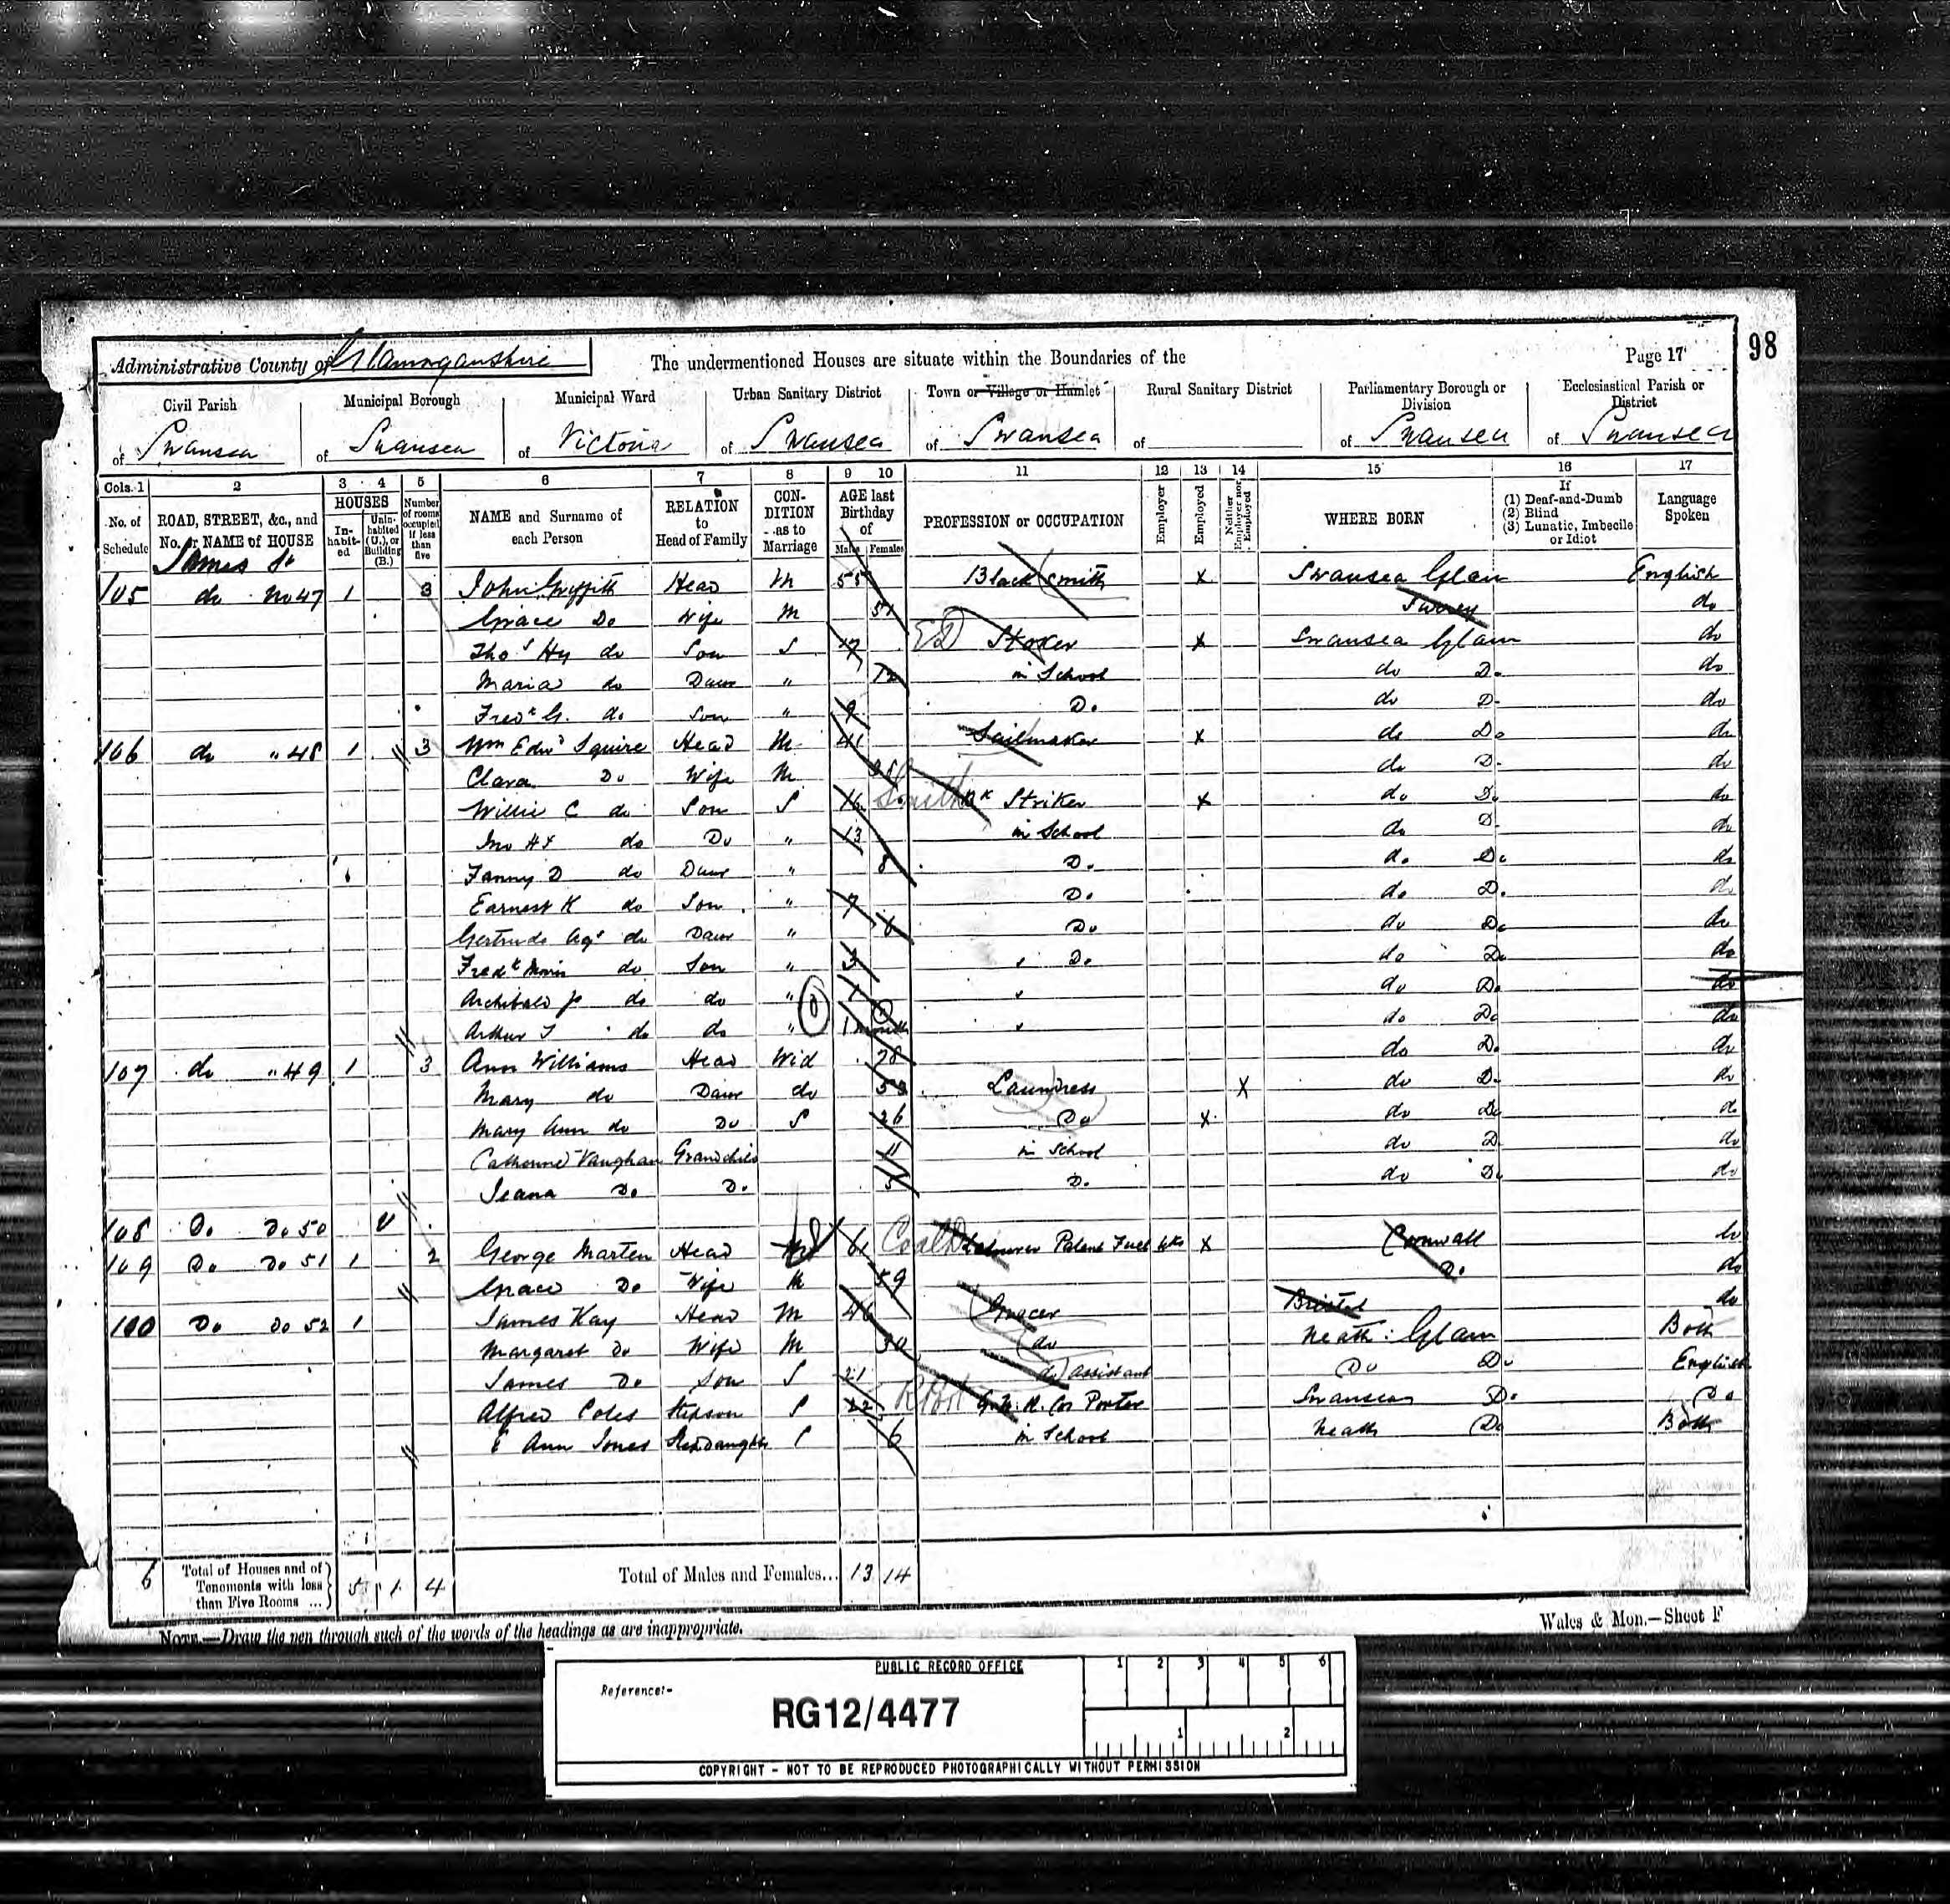 Administrative County of Glamorganshire The undermentioned Houses are situate within the Boundaries of the Page 17 98
Civil Parish Municipal Borough Municipal Ward Urban Sanitary District Town or Village or Hamlet Rural Sanitary District Parliamentary Borough or Division Ecclesiastical Parish or District
of Swansea of Swansea of Victoria of Swansea of Swansea of of Swansea of Swansea
Cols. 1 2 3 4 5 6 7 8 9 10 11 12 13 14 15 16 17
No. of Schedule ROAD, STREET, &c., and No. or NAME of HOUSE HOUSES In-habit-ed Unin-habited (U.), or Building (B.) Number of rooms occupied if less than five NAME and Surname of each Person RELATION to Head of Family CON-DITION as to Marriage AGE last Birthday of Males Females PROFESSION or OCCUPATION Employer Employed Neither Employer nor Employed WHERE BORN If (1) Deaf-and-Dumb (2) Blind (3) Lunatic, Imbecile or Idiot Language Spoken
James St
105 do No 47 1 3 John Griffith Head M 55 Blacksmith X Swansea Glam English
Grace Do Wife M 51 Surrey do
Thos Hy do Son S 17 Stoker X Swansea Glam do
Maria do Daur " 12 in School do Do do
Fredk G. do Son " 9 Do do Do do
106 do " 48 1 3 Wm Edwd Squire Head M 41 Sailmaker X do Do do
Clara Do Wife M do Do do
Willie C do Son S 16 Smith Striker X do Do do
Jno Hy do Do " 13 in School do D do
Fanny D do Daur " 8 Do do Do do
Earnest K do Son " 7 Do do Do do
Gertrude Ags do Daur " 6 Do do Do do
Fredk Morris do Son " 3 Do do Do do
Archibald J do do " 1 do Do do
Arthur T do do " 1 month do Do do
107 do " 49 1 3 Ann Williams Head Wid 78 do Do do
Mary do Daur do 53 Laundress X do Do do
Mary Ann do Do S 26 Do X do Do do
Catherine Vaughan Grandchild 11 in School do D do
Jeana Do Do 5 Do do Do do
108 Do Do 50 U
109 Do Do 51 1 2 George Marten Head M 61 Labourer Patent Fuel Wks X Cornwall do
Grace Do Wife M 59 Do do
110 Do Do 52 1 James Kay Head M 46 Grocer Bristol do
Margaret Do Wife M 30 do Neath: Glam Both
James Do Son S 21 do assistant Do Do English
Alfred Coles Stepson S 22 G.W.R. Co Porter Swansea Do Do
Ann Jones StepDaughter S 6 in School Neath Do Both
6 Total of Houses and of Tenements with less than Five Rooms ... 5 1 4 Total of Males and Females... 13 14
NOTE.—Draw the pen through such of the words of the headings as are inappropriate. Wales & Mon.—Sheet F
PUBLIC RECORD OFFICE 1 2 3 4 5 6
Reference:-
RG12/4477
1 2
COPYRIGHT - NOT TO BE REPRODUCED PHOTOGRAPHICALLY WITHOUT PERMISSION